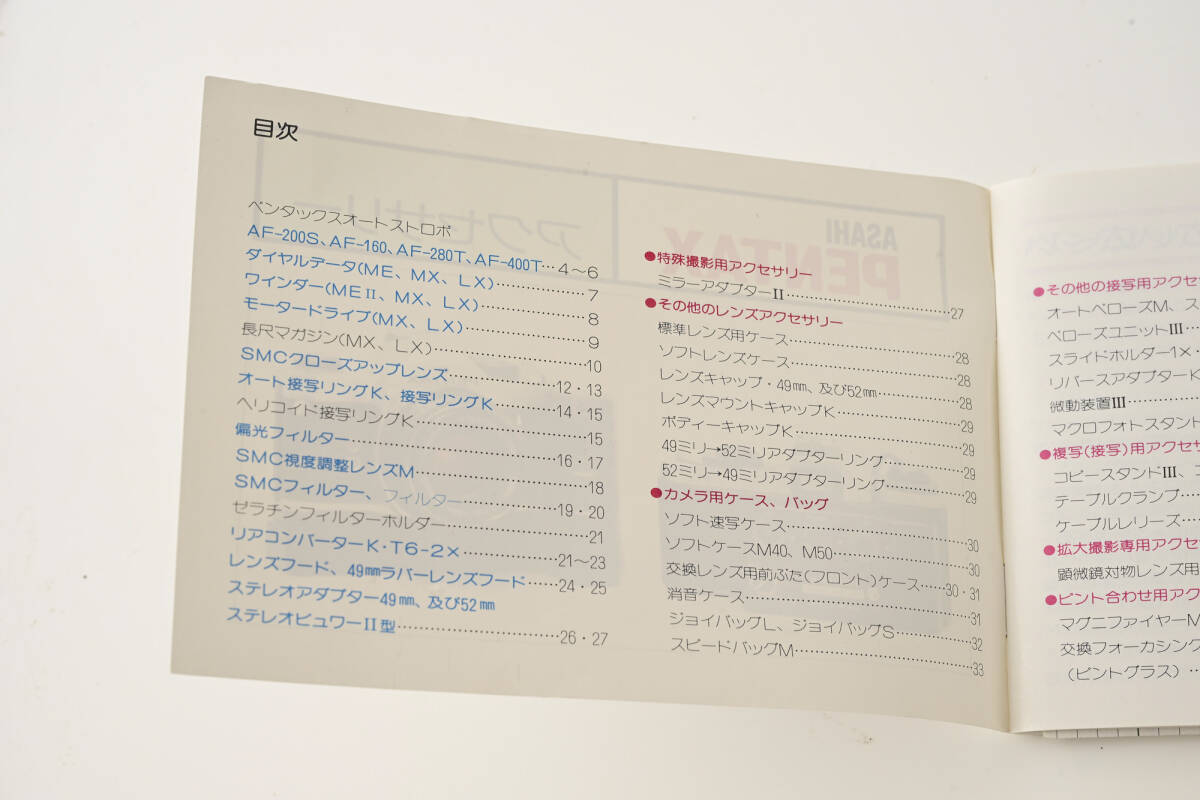 目次
ペンタックスオートストロボ
AF-200S、AF-160、AF-280T、AF-400T…4〜6
ダイヤルデータ(ME、MX、LX)………………7
ワインダー(MEⅡ、MX、LX)………………8
モータードライブ(MX、LX)………………9
長尺マガジン(MX、LX)………………10
SMCクローズアップレンズ………………12・13
オート接写リングK、接写リングK…………14・15
ヘリコイド接写リングK………………15
偏光フィルター………………16・17
SMC視度調整レンズM………………18
SMCフィルター、フィルター…………19・20
ゼラチンフィルターホルダー………………21
リアコンバーターK・T6-2×…………21〜23
レンズフード、49㎜ラバーレンズフード……24・25
ステレオアダプター49㎜、及び52㎜
ステレオビュワーⅡ型………………26・27
●特殊撮影用アクセサリー
ミラーアダプターⅡ………………27
●その他のレンズアクセサリー
標準レンズ用ケース………………28
ソフトレンズケース………………28
レンズキャップ・49㎜、及び52㎜…………28
レンズマウントキャップK………………29
ボディーキャップK………………29
49ミリ→52ミリアダプターリング…………29
52ミリ→49ミリアダプターリング…………29
●カメラ用ケース、バッグ
ソフト速写ケース………………30
ソフトケースM40、M50………………30
交換レンズ用前ぶた(フロント)ケース……30・31
消音ケース………………31
ジョイバッグL、ジョイバッグS…………32
スピードバッグM………………33
ASAHI
PENTAX
アクセサリー
●その他の接写用アクセ
オートベローズM、ス
ベローズユニットⅢ……
スライドホルダー1×・
リバースアダプターK
微動装置Ⅲ………
マクロフォトスタンド
●複写(接写)用アクセサ
コピースタンドⅢ、
テーブルクランプ……
ケーブルレリーズ……
●拡大撮影専用アクセサ
顕微鏡対物レンズ用
●ピント合わせ用アク
マグニファイヤーM
交換フォーカシング
(ピントグラス)…